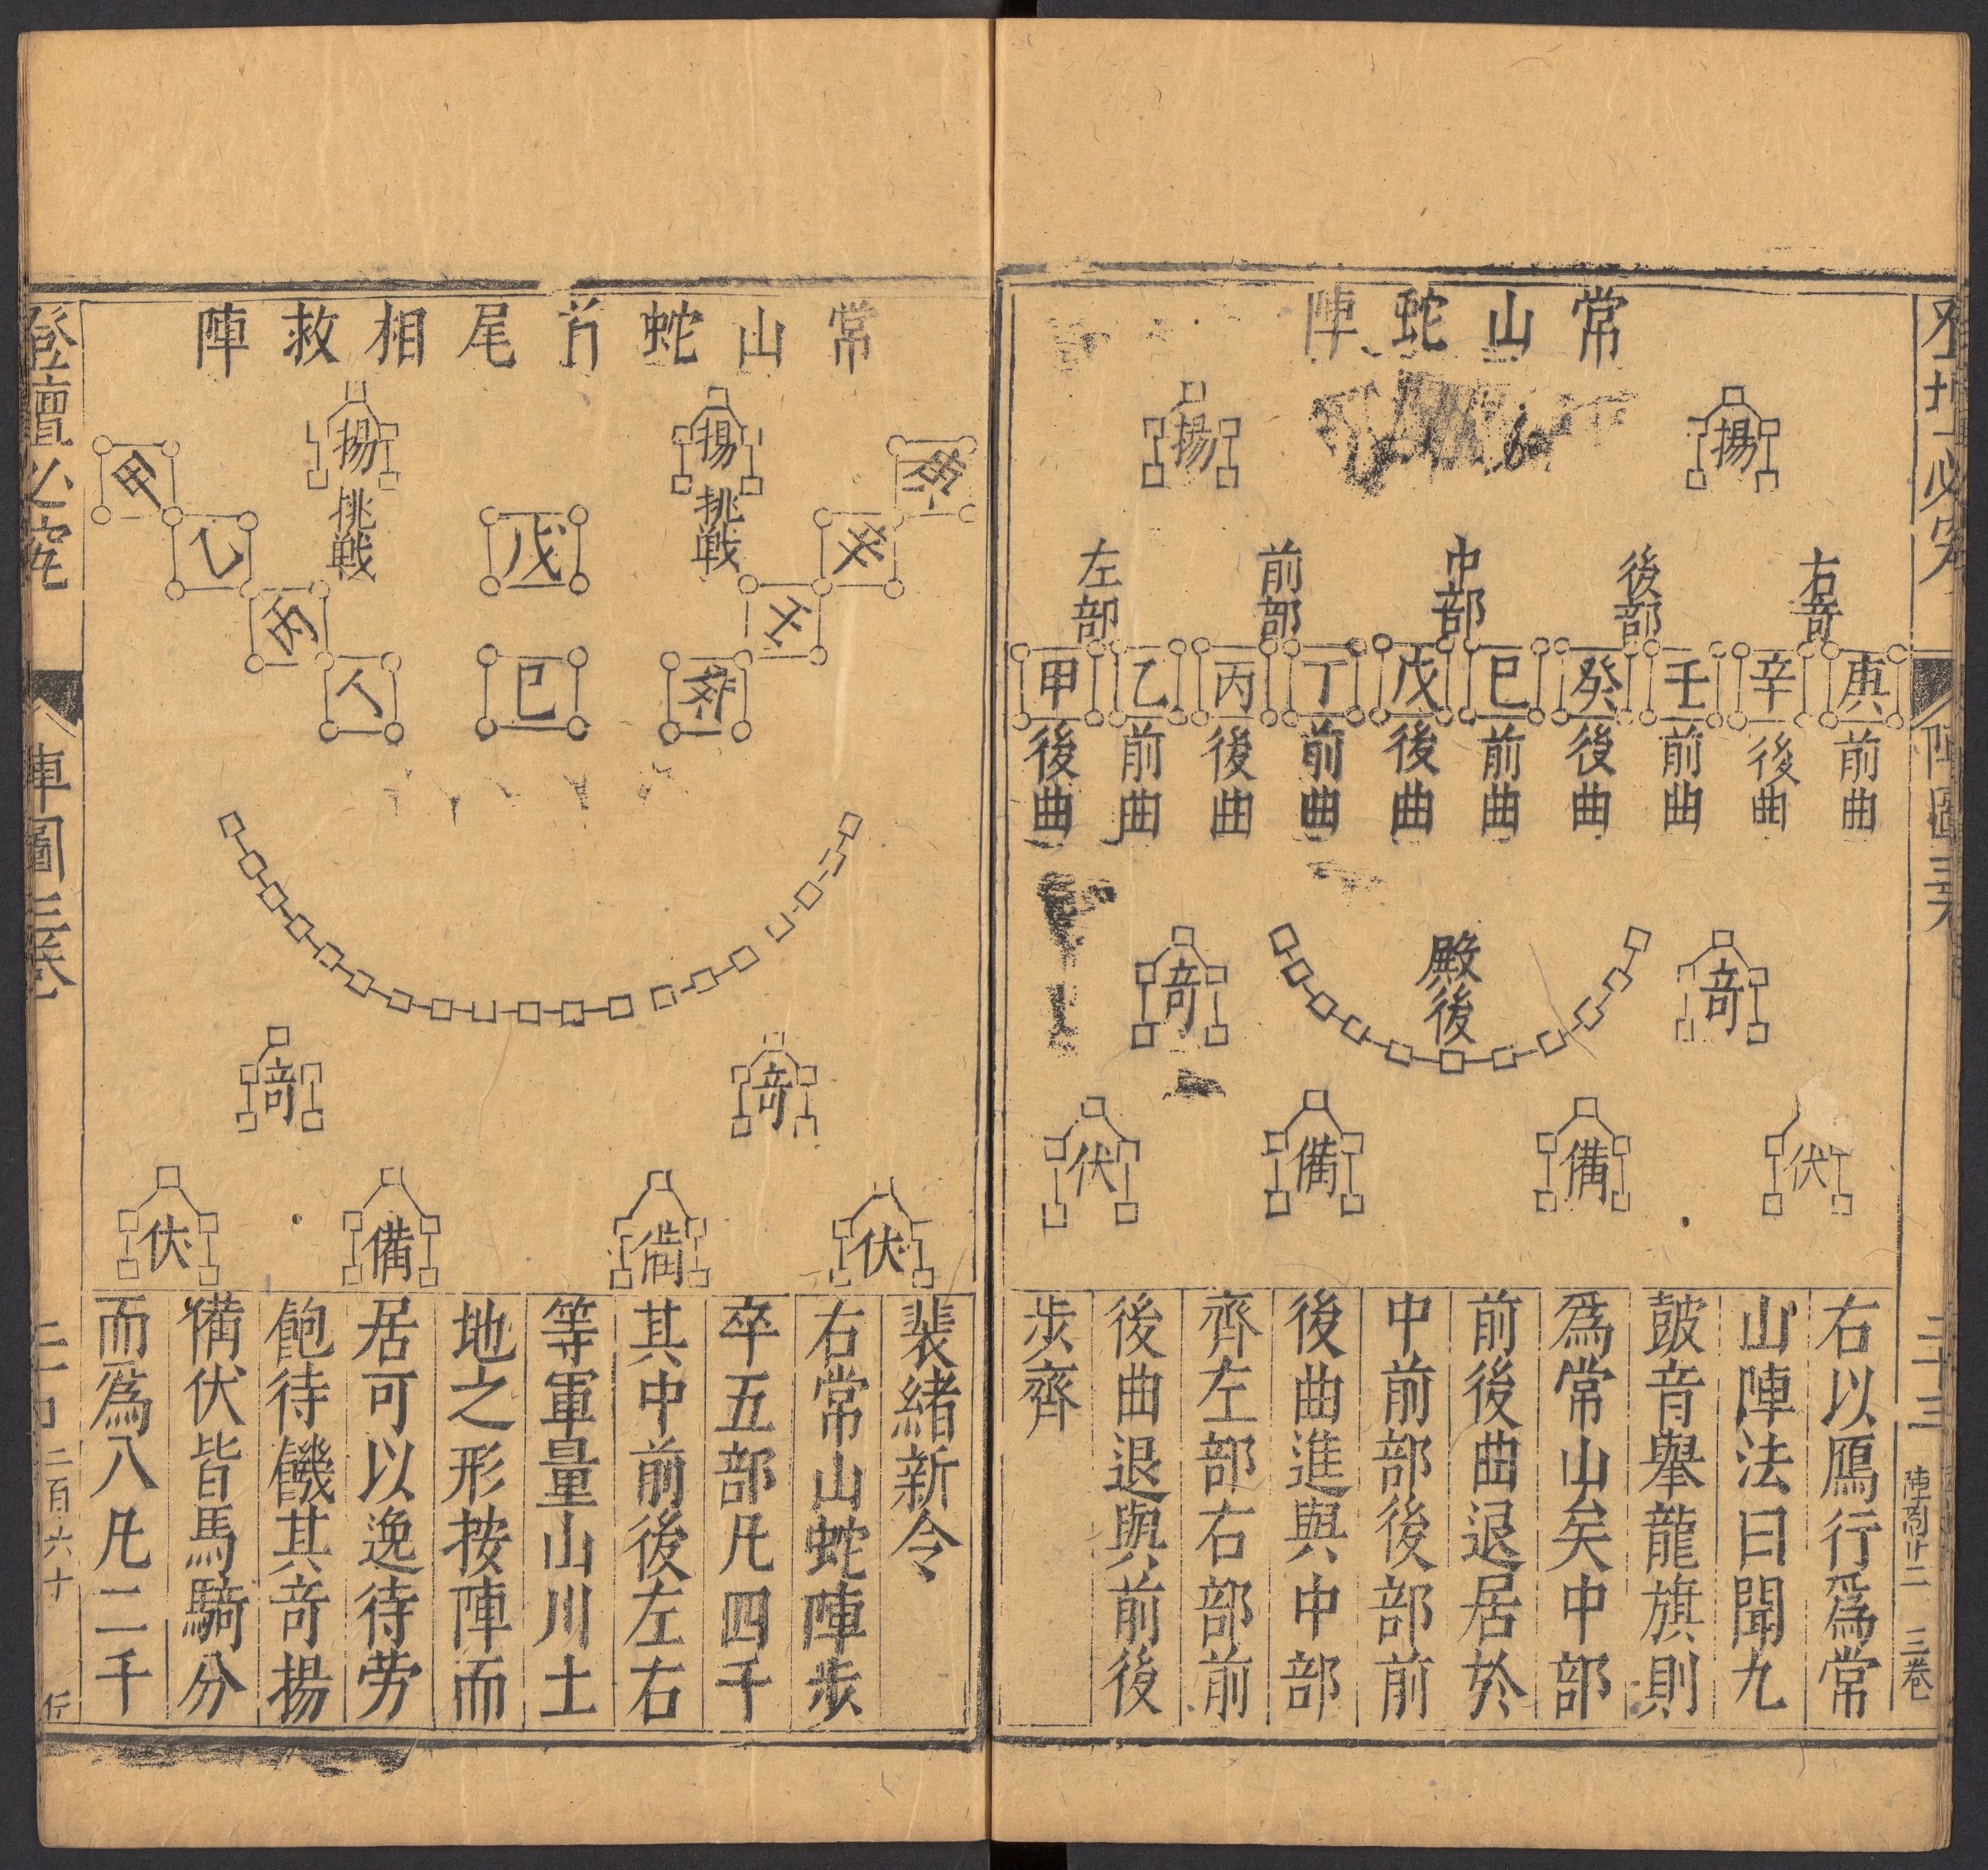 常山蛇陣
揚
揚
右奇
後部
中部
前部
左部
庚
辛
壬
癸
巳
戊
丁
丙
乙
甲
前曲
後曲
前曲
後曲
前曲
後曲
前曲
後曲
前曲
後曲
奇
殿後
奇
伏
備
備
伏
右以鴈行爲常
山陣法曰聞九
鼓音舉龍旗則
爲常山矣中部
前後曲退居於
中前部後部前
後曲進與中部
齊左部右部前
後曲退與前後
步齊
二十三
三卷
常山蛇首尾相救陣
揚
挑戰
揚
挑戰
壬
戊
巳
丙
乙
甲
奇
奇
伏
備
備
伏
裴緒新令
右常山蛇陣步
卒五部凡四千
其中前後左右
等軍量山川土
地之形按陣而
居可以逸待勞
飽待饑其奇揚
備伏皆馬騎分
而爲八凡二千
登壇必究
陣圖三卷
二百六十